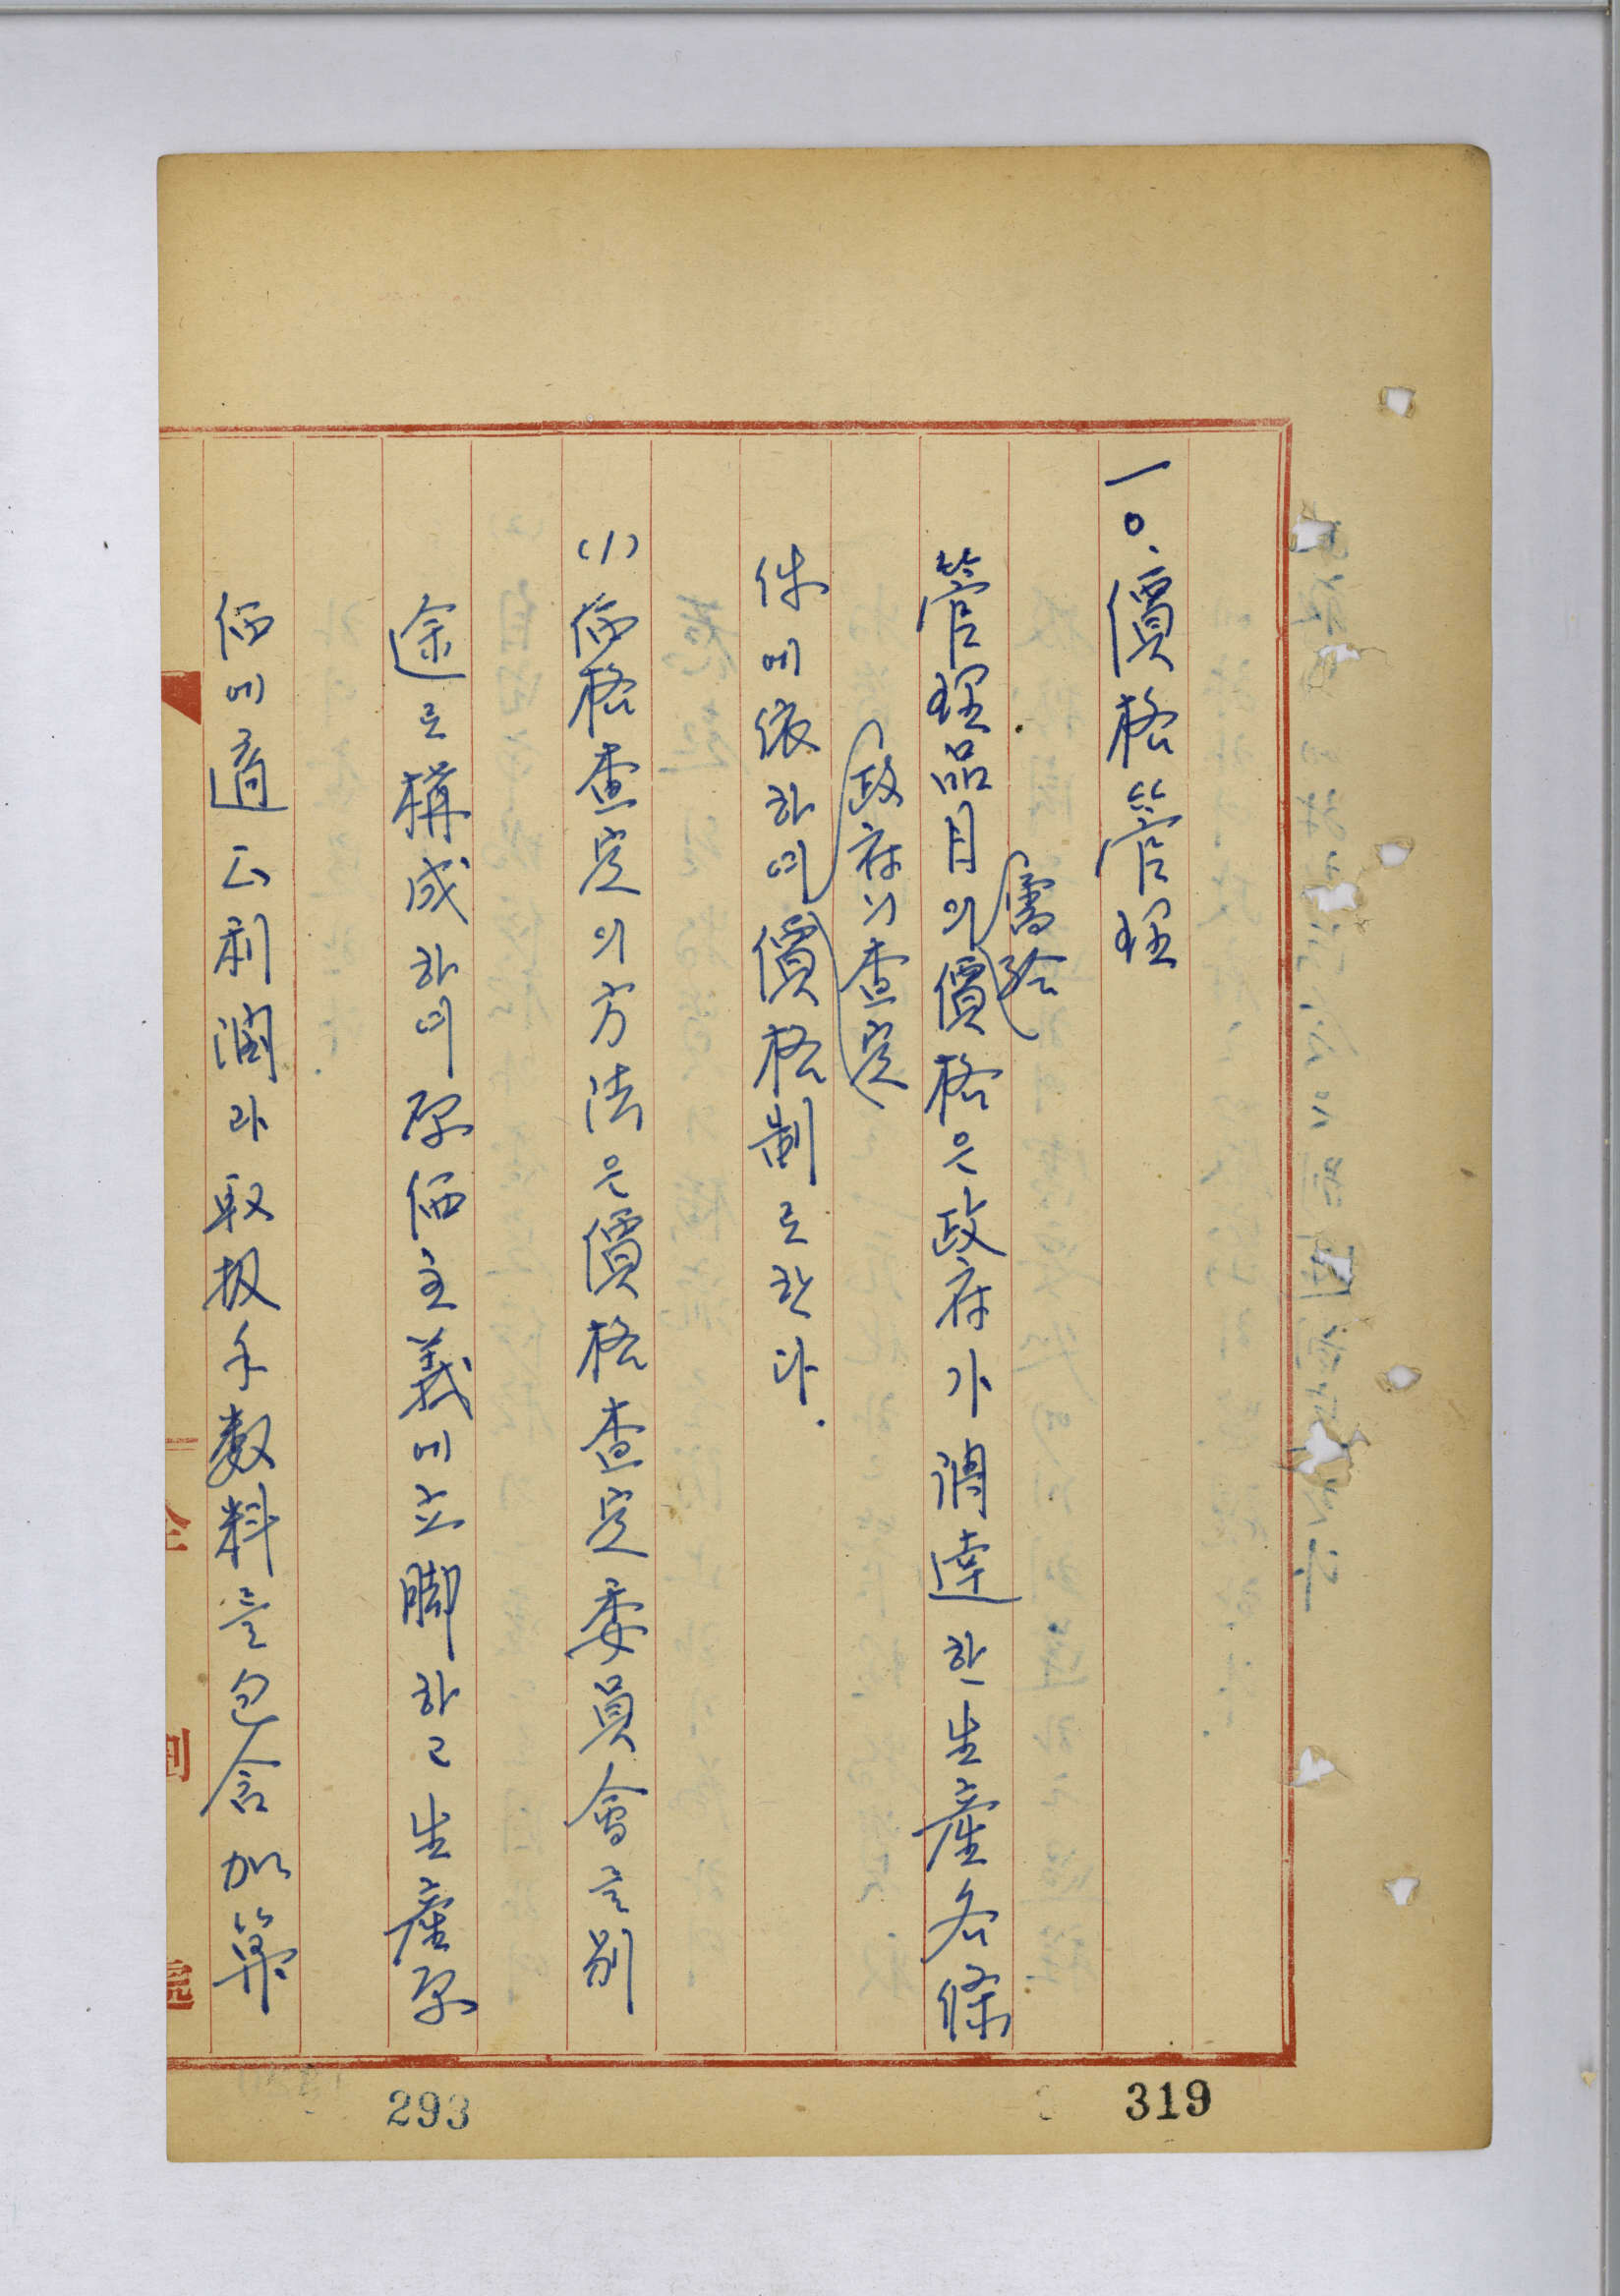 一〇、價格管理
需給
管理品目의價格은政府가調達한生産各條
政府의查定
件에依하여價格制로한다.
(1) 価格査定의方法은價格査定委員會를別
途로構成하여原価主義에立脚하고生産原
価에適正利潤과取扱手數料를包含加算
319
293